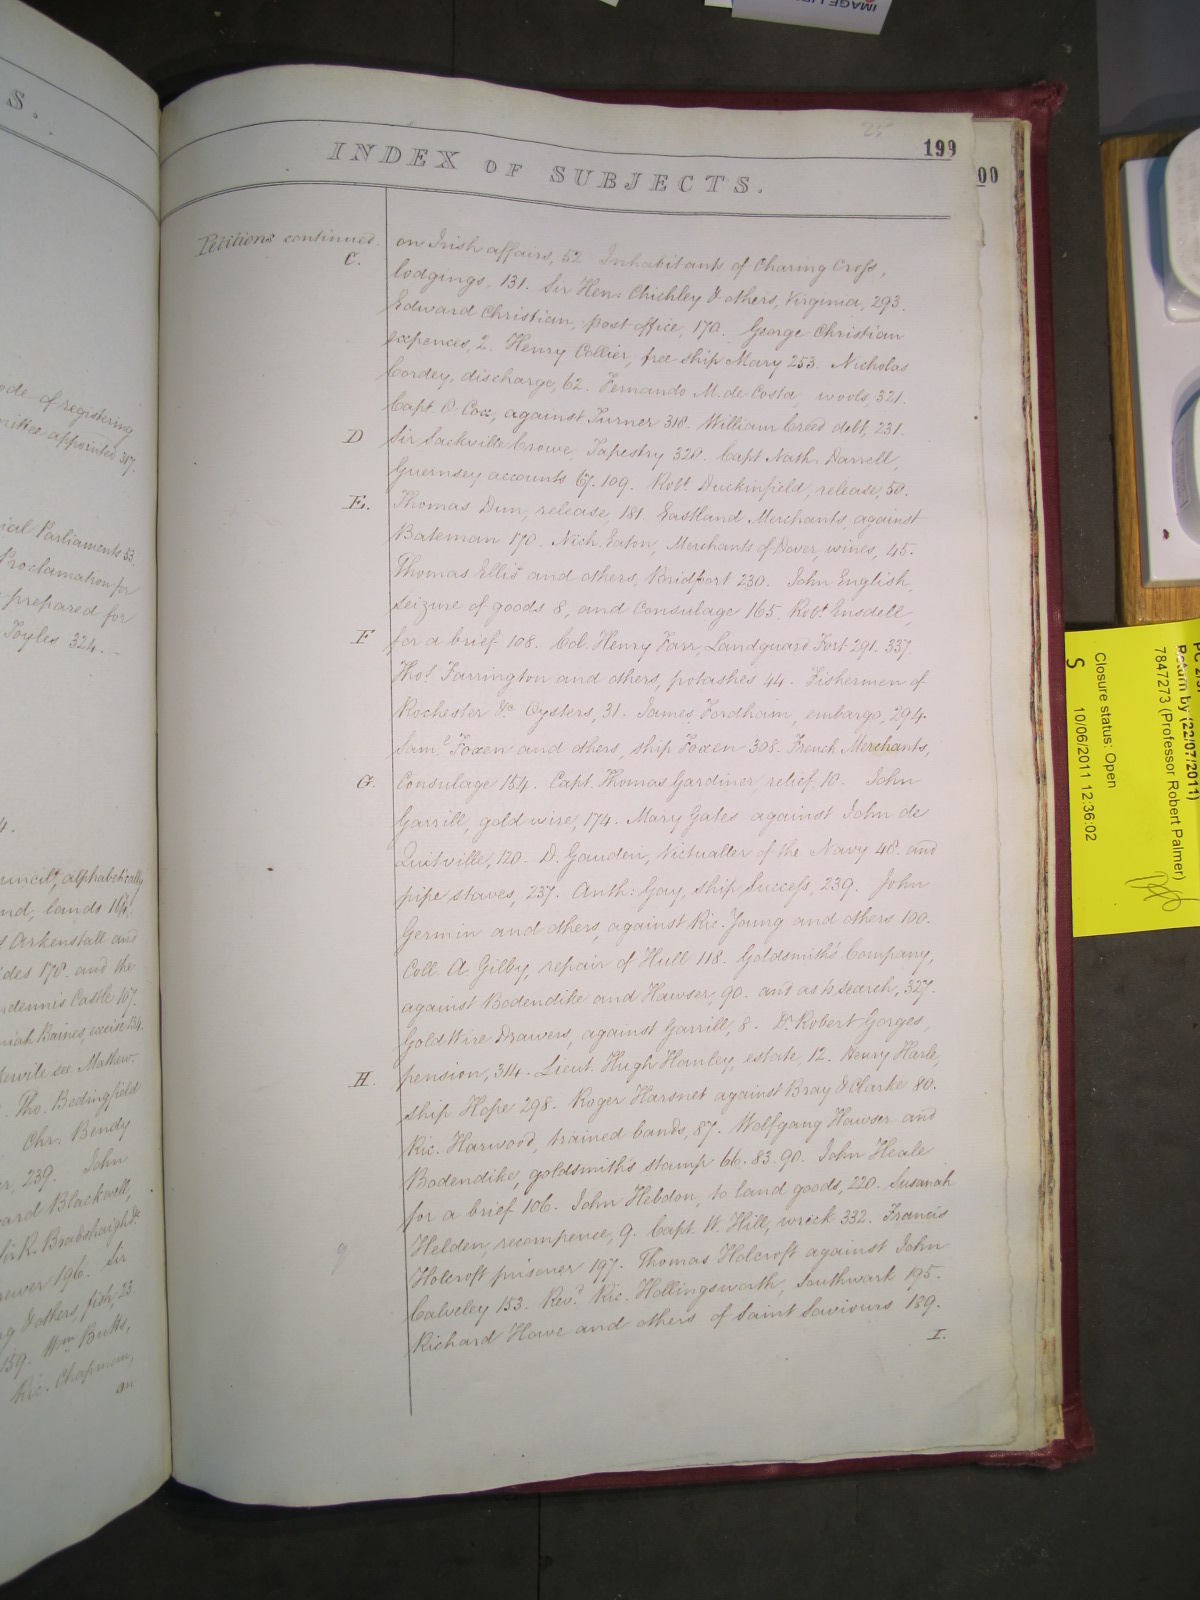 IMAGE LI
S.
ode of registering
mittee appointed 317.
ial Parliaments 53.
Proclamation for
prepared for
Toyles 324.
4.
uncil, alphabetically
nd, lands 164.
Arkenstall and
des 178. and the
ndennis Castle 107.
miah Baines, excise 134.
kerville see Mathew.
Tho. Bedingfield
Chr: Bendy
er, 239. John
ard Blackwell,
Sir R. Bradshaigh &c
ewer 196. Sir
g & others, fish, 23.
139. Wm Butts,
Ric. Chapman,
an
25
199
00
INDEX OF SUBJECTS.
Petitions continued.
on Irish affairs, 52. Inhabitants of Charing Cross,
C.
lodgings, 131. Sir Hen: Chichley & others, Virginia, 293.
Edward Christian, post office, 170. George Christian
expences, 2. Henry Collier, free ship Mary 253. Nicholas
Cordey, discharge, 62. Fernando M. de Costa, wools, 321.
Capt. O. Cox, against Turner 318. William Creed debt, 231.
D
Sir Sackville Crowe, Tapestry 328. Capt Nath. Darrell,
Guernsey accounts 67. 109. Robt. Duckinfield, release, 50.
E.
Thomas Dun, release, 181. Eastland Merchants, against
Bateman 170. Nich. Eaton, Merchants of Dover, wines, 45.
Thomas Ellis and others, Bridport 230. John English,
seizure of goods 8, and Consulage 165. Robt. Ensdell,
F
for a brief 108. Col. Henry Farr, Landguard Fort 291. 337.
Thos. Farrington and others, potashes 44. Fishermen of
Rochester &c Oysters, 31. James Fordham, embargo, 294.
Saml. Foxen and others, ship Foxen 308. French Merchants,
G.
Consulage 154. Capt. Thomas Gardiner, relief, 10. John
Garrill, gold wire, 174. Mary Gates against John de
Quitville, 120. D. Gauden, Victualler of the Navy 48. and
pipe staves, 237. Anth: Gay, ship Success, 239. John
Germin and others, against Ric. Young and others 100.
Coll. A. Gilby, repair of Hull 118. Goldsmiths Company,
against Bodendike and Hawser, 90. and as to search, 327.
Gold Wire Drawers, against Garrill, 8. Dr. Robert Gorges,
H.
pension, 314. Lieut. Hugh Hanley, estate, 12. Henry Harle,
ship Hope 298. Roger Harsnet against Bray & Clarke 80.
Ric. Harwood, trained bands, 87. Wolfgang Hawser and
Bodendike, goldsmith's stamp 66. 83. 90. John Heale
for a brief 106. John Hebdon, to land goods, 220. Susanah
Helden, recompence, 9. Capt. W. Hill, wreck 332. Francis
Holcroft prisoner 197. Thomas Holcroft against John
Calveley 153. Revd. Ric. Hollingsworth, Southwark 195.
Richard Howe and others of Saint Saviours 189.
I.
Return by (22/07/2011)
7847273 (Professor Robert Palmer)
Closure status: Open
10/06/2011 12:36:02
S